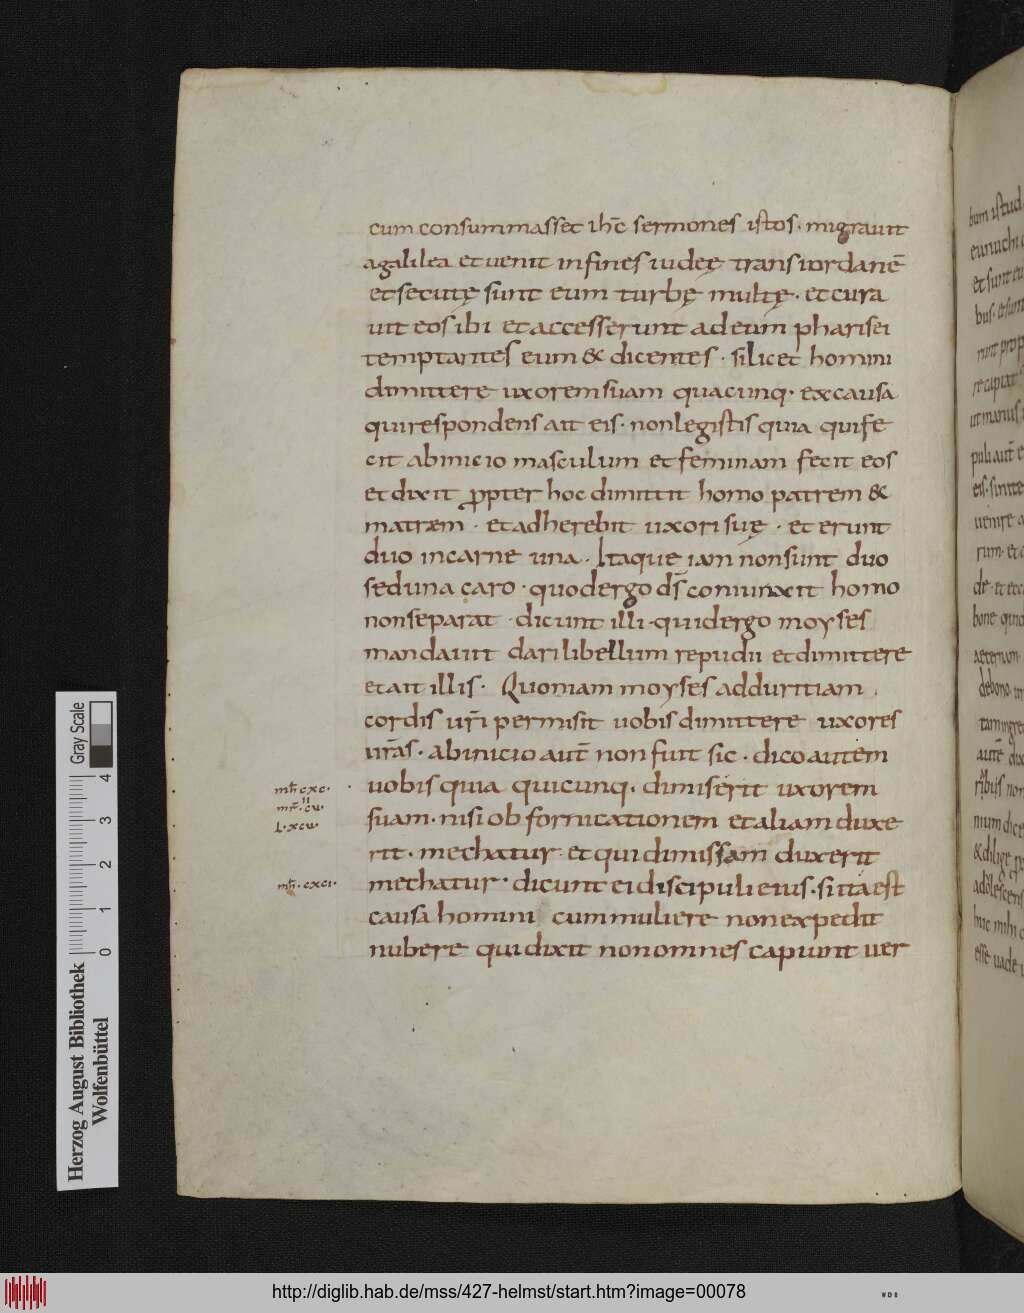 cum consummasset ihc̄ sermones istos · migrauit
a galilea et uenit in fines iudeę trans iordanē
et secutę sunt eum turbę multę · et cura
uit eos ibi et accesserunt ad eum pharisei
temptantes eum & dicentes · si licet homini
dimittere uxorem suam quacunq· ex causa
qui respondens ait eis · non legistis quia qui fe
cit ab inicio masculum et feminam fecit eos
et dixit ꝓpter hoc dimittit homo patrem &
matrem · et adherebit uxori suę · et erunt
duo in carne una · Itaque iam non sunt duo
sed una caro · quod ergo ds̄ coniunxit homo
non separat · dicunt illi · quid ergo moyses
mandauit dari libellum repudii et dimittere
et ait illis · Quoniam moyses ad duritiam
cordis ur̄i permisit uobis dimittere uxores
ur̄as · ab inicio aut̄ non fuit sic · dico autem
uobis quia quicunq· dimiserit uxorem
suam · nisi ob fornicationem et aliam duxe
rit · mechatur · et qui dimissam duxerit
mechatur · dicunt ei discipuli eius · si ita est
causa homini cum muliere non expedit
nubere qui dixit non omnes capiunt uer
mt̄ · cxc ·
L · xcu ·
mt̄ · cxci ·
Herzog August Bibliothek
Wolfenbüttel
Gray Scale
0 1 2 3 4
http://diglib.hab.de/mss/427-helmst/start.htm?image=00078